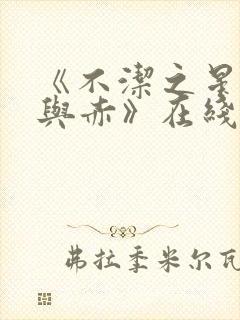 《不潔之星
與赤》在綫
弗拉季米尔瓦